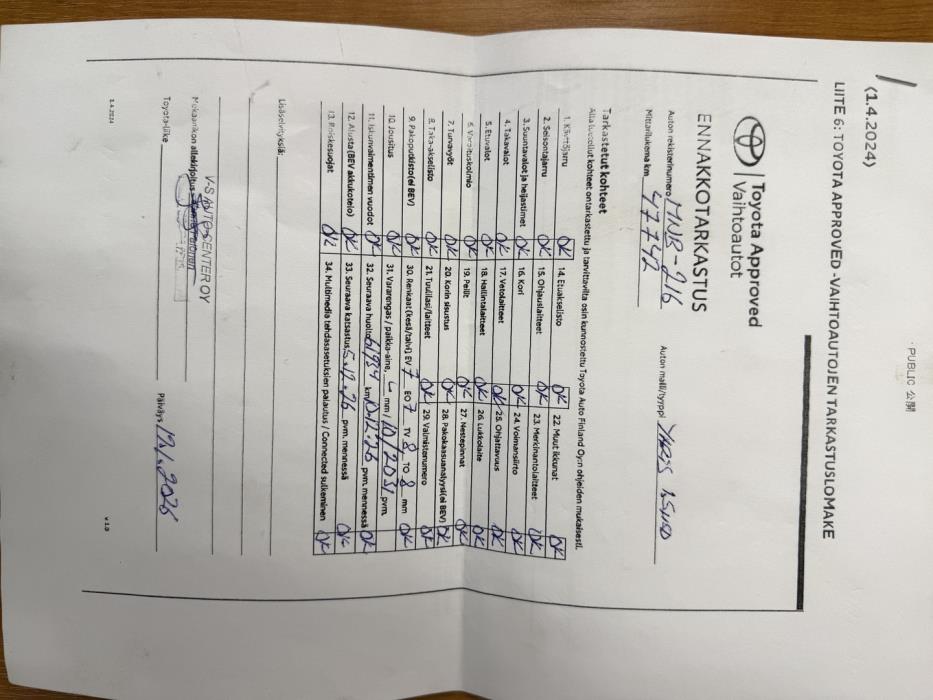 PUBLIC 公開
(1.4.2024)
LIITE 6: TOYOTA APPROVED -VAIHTOAUTOJEN TARKASTUSLOMAKE
Toyota Approved
Vaihtoautot
ENNAKKOTARKASTUS
Auton rekisterinumero MNB-216 Auton malli/tyyppi Yaris
Mittarilukema km 47742
Tarkastetut kohteet
Alla luetellut kohteet on tarkastettu ja tarvittavilta osin kunnostettu Toyota Auto Finland Oy:n ohjeiden mukaisesti.
1. Käyttöjarru OK 14. Etuakselisto OK 22. Muut ikkunat OK
2. Seisontajarru OK 15. Ohjauslaitteet OK 23. Merkinantolaitteet OK
3. Suuntavalot ja heijastimet OK 16. Kori OK 24. Voimansiirto OK
4. Takavalot OK 17. Vetolaitteet OK 25. Ohjattavuus OK
5. Etuvalot OK 18. Hallintalaitteet OK 26. Lukkolaite OK
6. Varoituskolmio OK 19. Peilit OK 27. Nestepinnat OK
7. Turvavyöt OK 20. Korin sisustus OK 28. Pakokaasuanalyysi (ei BEV) OK
8. Taka-akselisto OK 21. Tuulilasi/laitteet OK 29. Valmistenumero OK
9. Pakoputkisto (ei BEV) OK 30. Renkaat (kesä/talvi) EV 7 EO 7 TV 8 TO 8 mm OK
10. Jousitus OK 31. Vararengas / paikka-aine, mm / 10/2031 pvm.
11. Iskunvaimentimen vuodot OK 32. Seuraava huolto 61934 km/10.12.26 pvm. mennessä OK
12. Alusta (BEV akkukotelo) OK 33. Seuraava katsastus 5.12.26 pvm. mennessä OK
13. Roiskesuojat OK 34. Multimedia tehdasasetuksien palautus / Connected sulkeminen OK
Lisäselvityksiä:
V-S AUTOCENTER OY
Mekaanikon allekirjoitus
Toyota-liike Päiväys 19.1.2026
1.4.2024 v 1.0